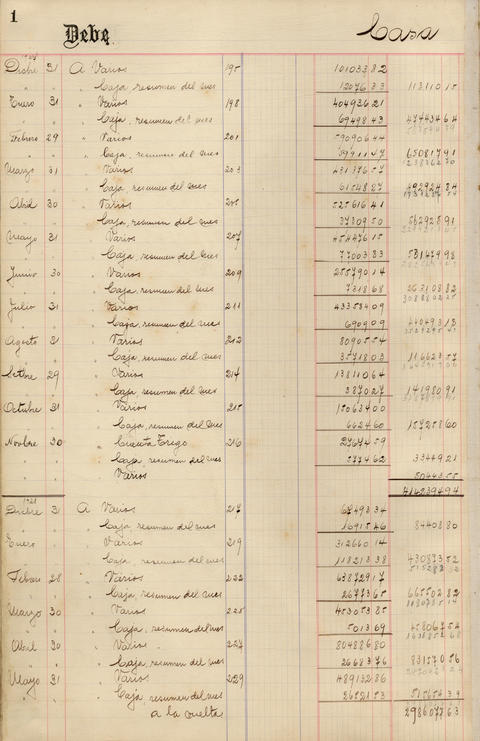 1
Debe Casa
Dicbre 31 A Varios 195 10103382
" " " Caja, resumen del mes 1207633 11311015
Enero 31 " Varios 198 40493621
" " " Caja, resumen del mes 6949843 47443464
Febrero 29 " Varios 201 59090644
" " " Caja, resumen del mes 5991147 65081791
Marzo 31 " Varios 203 43137657
" " Caja, resumen del mes 6154827 49292484
Abril 30 " Varios 205 52561641
" " Caja, resumen del mes 3731050 56292891
Mayo 31 " Varios 207 45447615
" " Caja, resumen del mes 7700383 53147998
Junio 30 " Varios 209 25579014
" " Caja, resumen del mes 731868 26310882
Julio 31 " Varios 211 43358409
" " Caja, resumen del mes 690909 44049318
Agosto 31 " Varios 212 8090554
" " Caja, resumen del mes 3571803 11662357
Sctbre 29 " Varios 214 13811064
" " Caja, resumen del mes 387027 14198091
Octubre 31 " Varios 215 15063400
" " Caja, resumen del mes 662460 15725860
Novbre 30 " Cuenta Trigo 216 2767459
" " Caja, resumen del mes 577462 3344921
" " Varios 5044355
414239494
Dicbre 31 A Varios 217 6749334
" " " Caja resumen del mes 1691546 8440880
Enero " Varios 219 31266014
" " Caja, resumen del mes 11821338 43087352
Febro 28 " Varios 222 63872917
" " Caja, resumen del mes 2677365 66550282
Marzo 30 " Varios 225 45305385
" " Caja, resumen del mes 501369 45806754
Abril 30 " Varios 227 80488680
" " Caja, resumen del mes 2668376 83157056
Mayo 31 " Varios 229 48913286
" " Caja, resumen del mes 2652153 51565439
a la vuelta 298607763